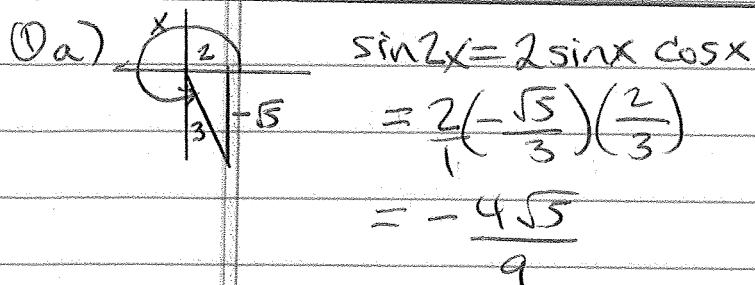 ① a) x 2 -√5 3
sin2x = 2 sinx cosx
= 2/1 (-√5/3)(2/3)
= - 4√5/9